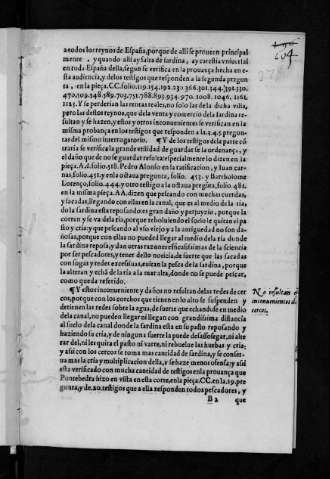 a todos los reynos de España, porque de alli se proueen principal
mente. y quando alli ay falta de sardina, ay carestia vniuersal
en toda España della, segun se verifica en la prouança hecha en
esta audiencia, y de los testigos que responden a la segunda pregun
ta, en la pieça. CC. folio. 119. 154. 192. 230. 366. 301. 344. 392. 430.
470. 509. 548. 589. 703. 751. 788. 891. 934. 970. 1008. 1046. 1062.
1125. Y se perderian las rentas reales, no solo las de la dicha villa,
pero las destos reynos, que de la venta y comercio de la sardina re-
sultan y se hazen, y estos y otros inconuenientes se verifican en la
misma probança en los testigos que responden a la. 2.4.5. pregun
tas del mismo interrogatorio. ¶ Y de los testigos dela parte cõ
traria se verifica la grande vtilidad de guardas de la ordenança, y
el daño que de no se guardar resulta: especialmente lo dizen en la
pieça. A A. folio. 518. Pedro Alonso en la ratificacion, y Iuan car
nas, folio. 452. y en la octaua pregunta, folio. 453. y Bartholome
Lorenço, folio. 444. y otro testigo a la octaua pregũta, folio. 481.
en la misma pieça. AA. dizen que pescando con muchas cuerdas,
y sacadas, llegando con ellas en la canal, que es el medio de la ria
do la sardina esta reposando es gran daño y perjuyzio, porque la
corren y no la dexan reposar, ni soltar la hueba do le quitan el pa
sto y cria: y que pescando al vso viejo y a la antigua dad no son da-
ñosas, porque con ellas no pueden llegar al medio dela ria dõnde
la sardina reposa, y dan otras razones eficacissimas de la sciencia
por ser pescadores, y tener desto noticia, de suerte que las sacadas
con sogas y redes excessiuas, quitan la pesca de la sardina, porque
la alteran y echã de la ria a la mar alta, donde no se puede pescar,
como queda referido.
¶ Y estos inconuenientes y daños no resultan delas redes de cer
cos, porque con los corchos que tienen en lo alto se suspenden y
detienen las redes sobre la agua, de suerte que echandose en medio
dela canal, no pueden llegar ni llegan con grandissima distancia
al suelo dela canal donde la sardina esta en su pasto reposando y
haziendo su cria, y de ningun a suerte la puede desassosegar, ni alte
rar della, ni les quita el pasto ni varte, ni rebuelue las huebas y cria:
y assi con los cercos se toma mas cantidad de sardina, y se conser-
ua mas la cria y multiplicacion della, y se haze menos ofensa: y assi
esta verificado con mucha cantidad de testigos en la prouança que
Pontebedra hizo en vista en esta corte, en la pieça. CC. en la. 19. pre
gunta, y de. 20. testigos que a ella responden todos pescadores, y
B 2 que
204
No resultan
inconuenientes de
cercos.